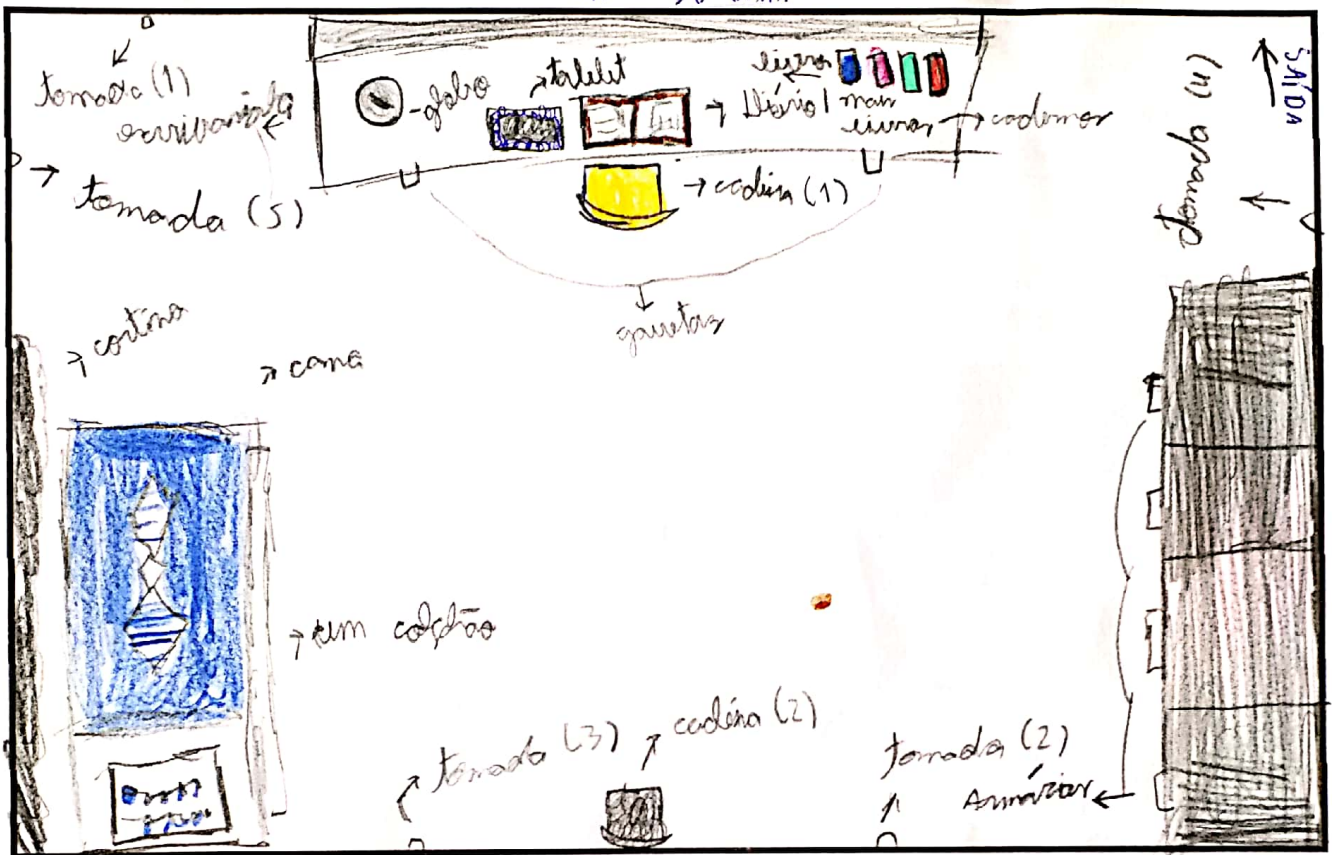 tomada (1)
escrivaninha
tomada (5)
globo
tablet
Diário/
livros
mais
livros
cadernos
cadeira (1)
gavetas
SAÍDA
tomada (4)
cortina
cama
um colchão
tomada (3)
cadeira (2)
tomada (2)
Armários